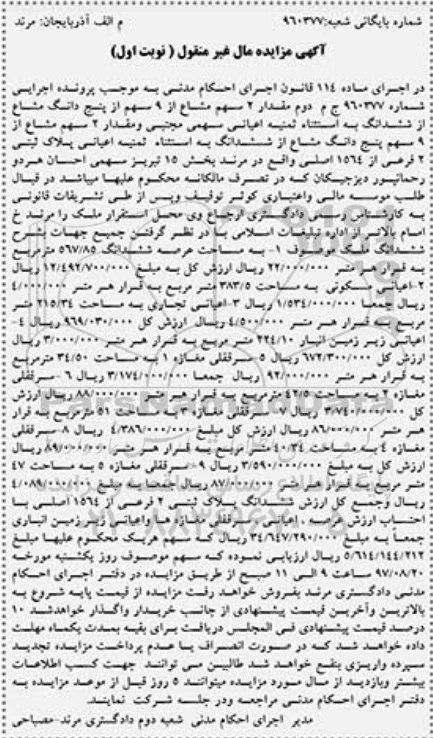 شماره بایگانی شعبه:۹۶۰۳۷۷ م الف آذربایجان: مرند
آگهی مزایده مال غیر منقول ( نوبت اول)
در اجرای ماده ۱۱۴ قانون اجرای احکام مدنی به موجب پرونده اجرایی
شماره ۹۶۰۳۷۷ ج م دوم مقدار ۲ سهم مشاع از ۹ سهم از پنج دانگ مشاع
از ششدانگ به استثناء ثمنیه اعیانی سهمی مجتبی ومقدار ۲ سهم مشاع از
۹ سهم پنج دانگ مشاع از ششدانگ به استثناء ثمنیه اعیانی پلاک ثبتی
۲ فرعی از ۱۵۶۴ اصلی واقع در مرند بخش ۱۵ تبریز سهمی احسان هردو
رحمانپور دیزجیکان که در تصرف مالکانه محکوم علیها میباشد در قبال
طلب موسسه مالی واعتباری کوثر توقیف وپس از طی تشریفات قانونی
به کارشناس رسمی دادگستری ارجاع وی محل استقرار ملک را مرند خ
امام بالاتر از اداره تبلیغات اسلامی با در نظر گرفتن جمیع جهات بشرح
ششدانگ ملک موصوف ۱- به مساحت عرصه ششدانگ ۵۶۷/۸۵ مترمربع
به قرار هر متر ۲۲/۰۰۰/۰۰۰ ریال ارزش کل به مبلغ ۱۲/۴۹۲/۷۰۰/۰۰۰ ریال
۲-اعیانی مسکونی به مساحت ۳۸۳/۵ متر مربع به قرار هر متر ۴/۰۰۰/۰۰۰
ریال جمعا ۱/۵۳۴/۰۰۰/۰۰۰ ریال ۳-اعیانی تجاری به مساحت ۲۱۵/۳۴ متر
مربع به قرار هر متر ۴/۵۰۰/۰۰۰ ریال ارزش کل ۹۶۹/۰۳۰/۰۰۰ ریال ۴-
اعیانی زیر زمین انبار ۲۲۴/۱۰ متر مربع به قرار هر متر ۳/۰۰۰/۰۰۰ ریال
ارزش کل ۶۷۲/۳۰۰/۰۰۰ ریال ۵-سرقفلی مغازه ۱ به مساحت ۳۴/۵۰ مترمربع
به قرار هر متر ۹۲/۰۰۰/۰۰۰ ریال جمعا ۳/۱۷۴/۰۰۰/۰۰۰ ریال ۶-سرقفلی
مغازه ۲ به مساحت ۴۲/۵ مترمربع به قرار هر متر ۸۸/۰۰۰/۰۰۰ ریال ارزش
کل ۳/۷۴۰/۰۰۰/۰۰۰ ریال ۷-سرقفلی مغازه ۳ به مساحت ۵۱ مترمربع به قرار
هر متر ۸۶/۰۰۰/۰۰۰ ریال ارزش کل مبلغ ۴/۳۸۶/۰۰۰/۰۰۰ ریال ۸-سرقفلی
مغازه ۴ به مساحت ۴۰/۳۴ متر مربع به قرار هر متر ۸۹/۰۰۰/۰۰۰ ریال
ارزش کل به مبلغ ۳/۵۹۰/۰۰۰/۰۰۰ ریال ۹-سرقفلی مغازه ۵ به مساحت ۴۷
متر مربع به قرار هر متر ۸۷/۰۰۰/۰۰۰ ریال جمعا به مبلغ ۴/۰۸۹/۰۰۰/۰۰۰
ریال وجمع کل ارزش ششدانگ پلاک ثبتی ۲ فرعی از ۱۵۶۴ اصلی با
احتساب ارزش عرصه . اعیانی . سرقفلی مغازه ها واعیانی زیر زمین انباری
جمعاً به مبلغ ۳۴/۶۴۷/۲۹۰/۰۰۰ ریال که سهم هریک محکوم علیها مبلغ
۵/۶۱۴/۱۴۴/۲۱۲ ریال ارزیابی نموده که سهم موصوف روز یکشنبه مورخه
۹۷/۰۸/۲۰ ساعت ۹ الی ۱۱ صبح از طریق مزایده در دفتر اجرای احکام
مدنی دادگستری مرند بفروش خواهد رفت مزایده از قیمت پایه شروع به
بالاترین وآخرین قیمت پیشنهادی از جانب خریدار واگذار خواهدشد ۱۰
درصد قیمت پیشنهادی فی المجلس دریافت برای بقیه بمدت یکماه مهلت
داده خواهد شد که در صورت انصراف یا عدم پرداخت مزایده تجدید
سپرده واریزی بنفع خواهد شد طالبین می توانند جهت کسب اطلاعات
بیشتر وبازدید از مال مورد مزایده میتوانند ۵ روز قبل از موعد مزایده به
دفتر اجرای احکام مدنی مراجعه ودر جلسه شرکت نمایند.
مدیر اجرای احکام مدنی شعبه دوم دادگستری مرند-مصباحی